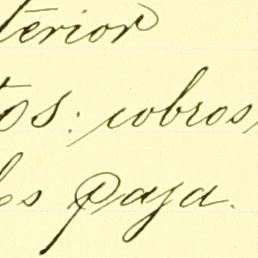 terior
tos: cobros
les paja.